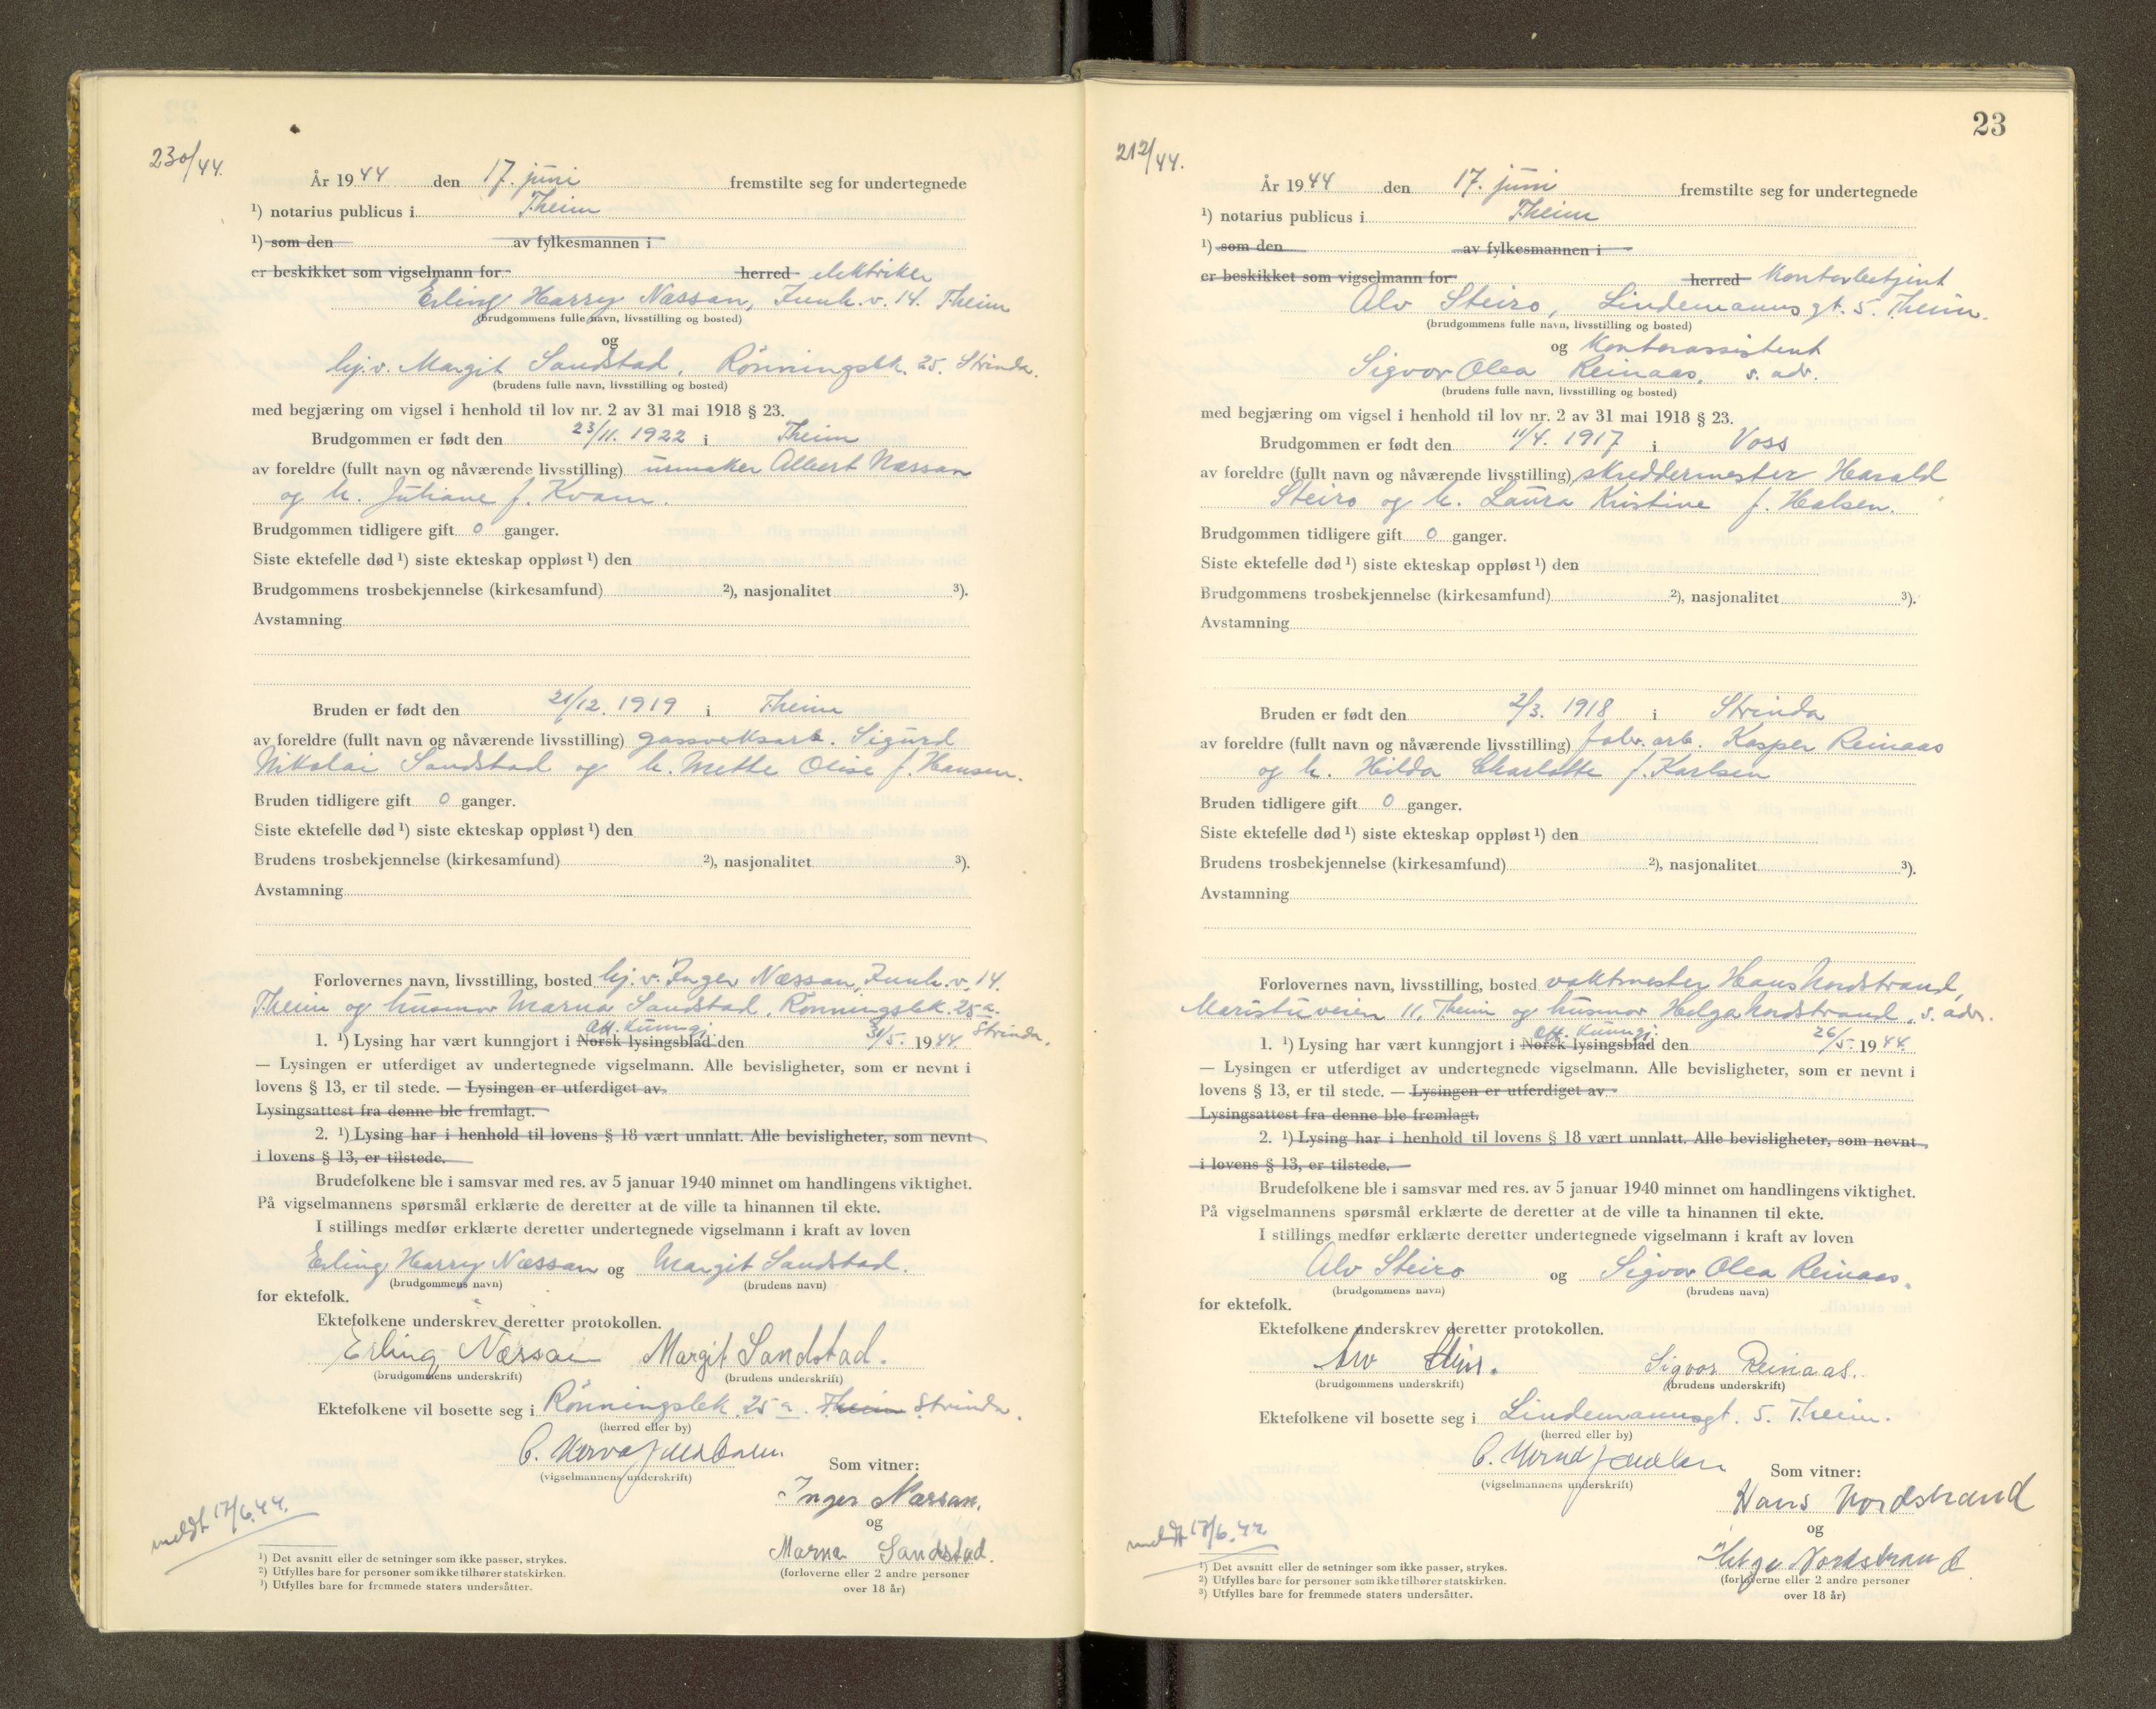 230/44.
År 1944 den 17. juni fremstilte seg for undertegnede
¹) notarius publicus i Theim
¹) som den av fylkesmannen i
er beskikket som vigselmann for herred elektriker
Erling Harry Næssan, Junk.v. 14. Theim
(brudgommens fulle navn, livsstilling og bosted)
og
hj.v. Margit Sandstad, Rönningsbk. 25. Strinda.
(brudens fulle navn, livsstilling og bosted)
med begjæring om vigsel i henhold til lov nr. 2 av 31 mai 1918 § 23.
Brudgommen er født den 23/11. 1922 i Theim
av foreldre (fullt navn og nåværende livsstilling) urmaker Albert Næssan
og h. Juliane f. Kvam.
Brudgommen tidligere gift 0 ganger.
Siste ektefelle død ¹) siste ekteskap oppløst ¹) den
Brudgommens trosbekjennelse (kirkesamfund) ²), nasjonalitet ³).
Avstamning
Bruden er født den 21/12. 1919 i Theim
av foreldre (fullt navn og nåværende livsstilling) gassverksarb. Sigurd
Nikolai Sandstad og h. Mette Olise f. Hansen.
Bruden tidligere gift 0 ganger.
Siste ektefelle død ¹) siste ekteskap oppløst ¹) den
Brudens trosbekjennelse (kirkesamfund) ²), nasjonalitet ³).
Avstamning
Forlovernes navn, livsstilling, bosted hj.v. Inger Næssan, Junk.v. 14.
Theim og husmor Marna Sandstad, Rönningsbk. 25a.
Strinda.
Off. Kunngj.
1. ¹) Lysing har vært kunngjort i Norsk lysingsblad den 31/5. 1944.
— Lysingen er utferdiget av undertegnede vigselmann. Alle bevisligheter, som er nevnt i
lovens § 13, er til stede. — Lysingen er utferdiget av
Lysingsattest fra denne ble fremlagt.
2. ¹) Lysing har i henhold til lovens § 18 vært unnlatt. Alle bevisligheter, som nevnt
i lovens § 13, er tilstede.
Brudefolkene ble i samsvar med res. av 5 januar 1940 minnet om handlingens viktighet.
På vigselmannens spørsmål erklærte de deretter at de ville ta hinannen til ekte.
I stillings medfør erklærte deretter undertegnede vigselmann i kraft av loven
Erling Harry Næssan og Margit Sandstad.
(brudgommens navn) (brudens navn)
for ektefolk.
Ektefolkene underskrev deretter protokollen.
Erling Næssan Margit Sandstad.
(brudgommens underskrift) (brudens underskrift)
Ektefolkene vil bosette seg i Rönningsbk. 25a. Theim Strinda.
(herred eller by)
(vigselmannens underskrift)
Som vitner:
Inger Næssan.
og
Marna Sandstad.
(forloverne eller 2 andre personer
over 18 år)
meldt 17/6.44.
¹) Det avsnitt eller de setninger som ikke passer, strykes.
²) Utfylles bare for personer som ikke tilhører statskirken.
³) Utfylles bare for fremmede staters undersåtter.
23
212/44.
År 1944 den 17. juni fremstilte seg for undertegnede
¹) notarius publicus i Theim
¹) som den av fylkesmannen i
er beskikket som vigselmann for herred Kontorbetjent
Alv Steiro, Lindemannsgt. 5. Theim.
(brudgommens fulle navn, livsstilling og bosted)
og Kontorassistent
Sigvor Olea Reinaas, s. adr.
(brudens fulle navn, livsstilling og bosted)
med begjæring om vigsel i henhold til lov nr. 2 av 31 mai 1918 § 23.
Brudgommen er født den 11/4. 1917 i Voss
av foreldre (fullt navn og nåværende livsstilling) skreddermester Harald
Steiro og h. Laura Kristine f. Halsen.
Brudgommen tidligere gift 0 ganger.
Siste ektefelle død ¹) siste ekteskap oppløst ¹) den
Brudgommens trosbekjennelse (kirkesamfund) ²), nasjonalitet ³).
Avstamning
Bruden er født den 2/3. 1918 i Strinda
av foreldre (fullt navn og nåværende livsstilling) fabr. arb. Kasper Reinaas
og h. Hilda Charlotte f. Karlsen
Bruden tidligere gift 0 ganger.
Siste ektefelle død ¹) siste ekteskap oppløst ¹) den
Brudens trosbekjennelse (kirkesamfund) ²), nasjonalitet ³).
Avstamning
Forlovernes navn, livsstilling, bosted vaktmester Hans Nordstrand,
Maristuveien 11, Theim og husmor Helga Nordstrand, s. adr.
Off. Kunngj.
1. ¹) Lysing har vært kunngjort i Norsk lysingsblad den 26/5. 1944.
— Lysingen er utferdiget av undertegnede vigselmann. Alle bevisligheter, som er nevnt i
lovens § 13, er til stede. — Lysingen er utferdiget av
Lysingsattest fra denne ble fremlagt.
2. ¹) Lysing har i henhold til lovens § 18 vært unnlatt. Alle bevisligheter, som nevnt
i lovens § 13, er tilstede.
Brudefolkene ble i samsvar med res. av 5 januar 1940 minnet om handlingens viktighet.
På vigselmannens spørsmål erklærte de deretter at de ville ta hinannen til ekte.
I stillings medfør erklærte deretter undertegnede vigselmann i kraft av loven
Alv Steiro og Sigvor Olea Reinaas.
(brudgommens navn) (brudens navn)
for ektefolk.
Ektefolkene underskrev deretter protokollen.
Alv Steiro. Sigvor Reinaas.
(brudgommens underskrift) (brudens underskrift)
Ektefolkene vil bosette seg i Lindemannsgt. 5. Theim.
(herred eller by)
(vigselmannens underskrift)
Som vitner:
Hans Nordstrand
og
Helga Nordstrand
(forloverne eller 2 andre personer
over 18 år)
meldt 17/6.44
¹) Det avsnitt eller de setninger som ikke passer, strykes.
²) Utfylles bare for personer som ikke tilhører statskirken.
³) Utfylles bare for fremmede staters undersåtter.